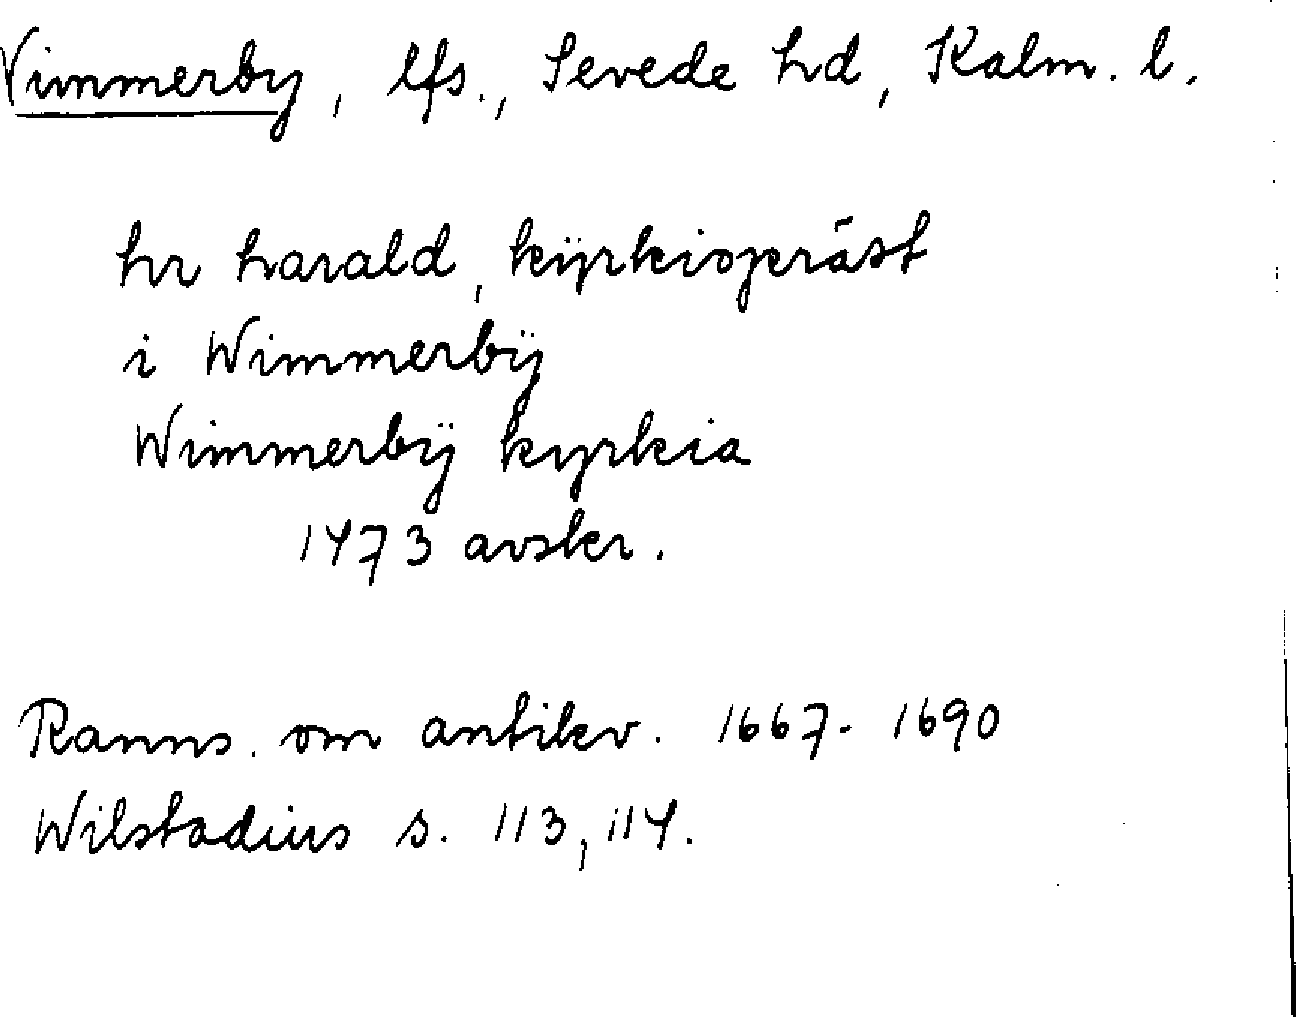 Vimmerby, lfs., Sevede hd, Kalm. l.
hr harald, kÿrkiopräst
i Wimmerbÿ
Wimmerbÿ kyrkia
1473 avskr.
Ranns. om antikv. 1667-1690
Wilstadius s. 113, 114.